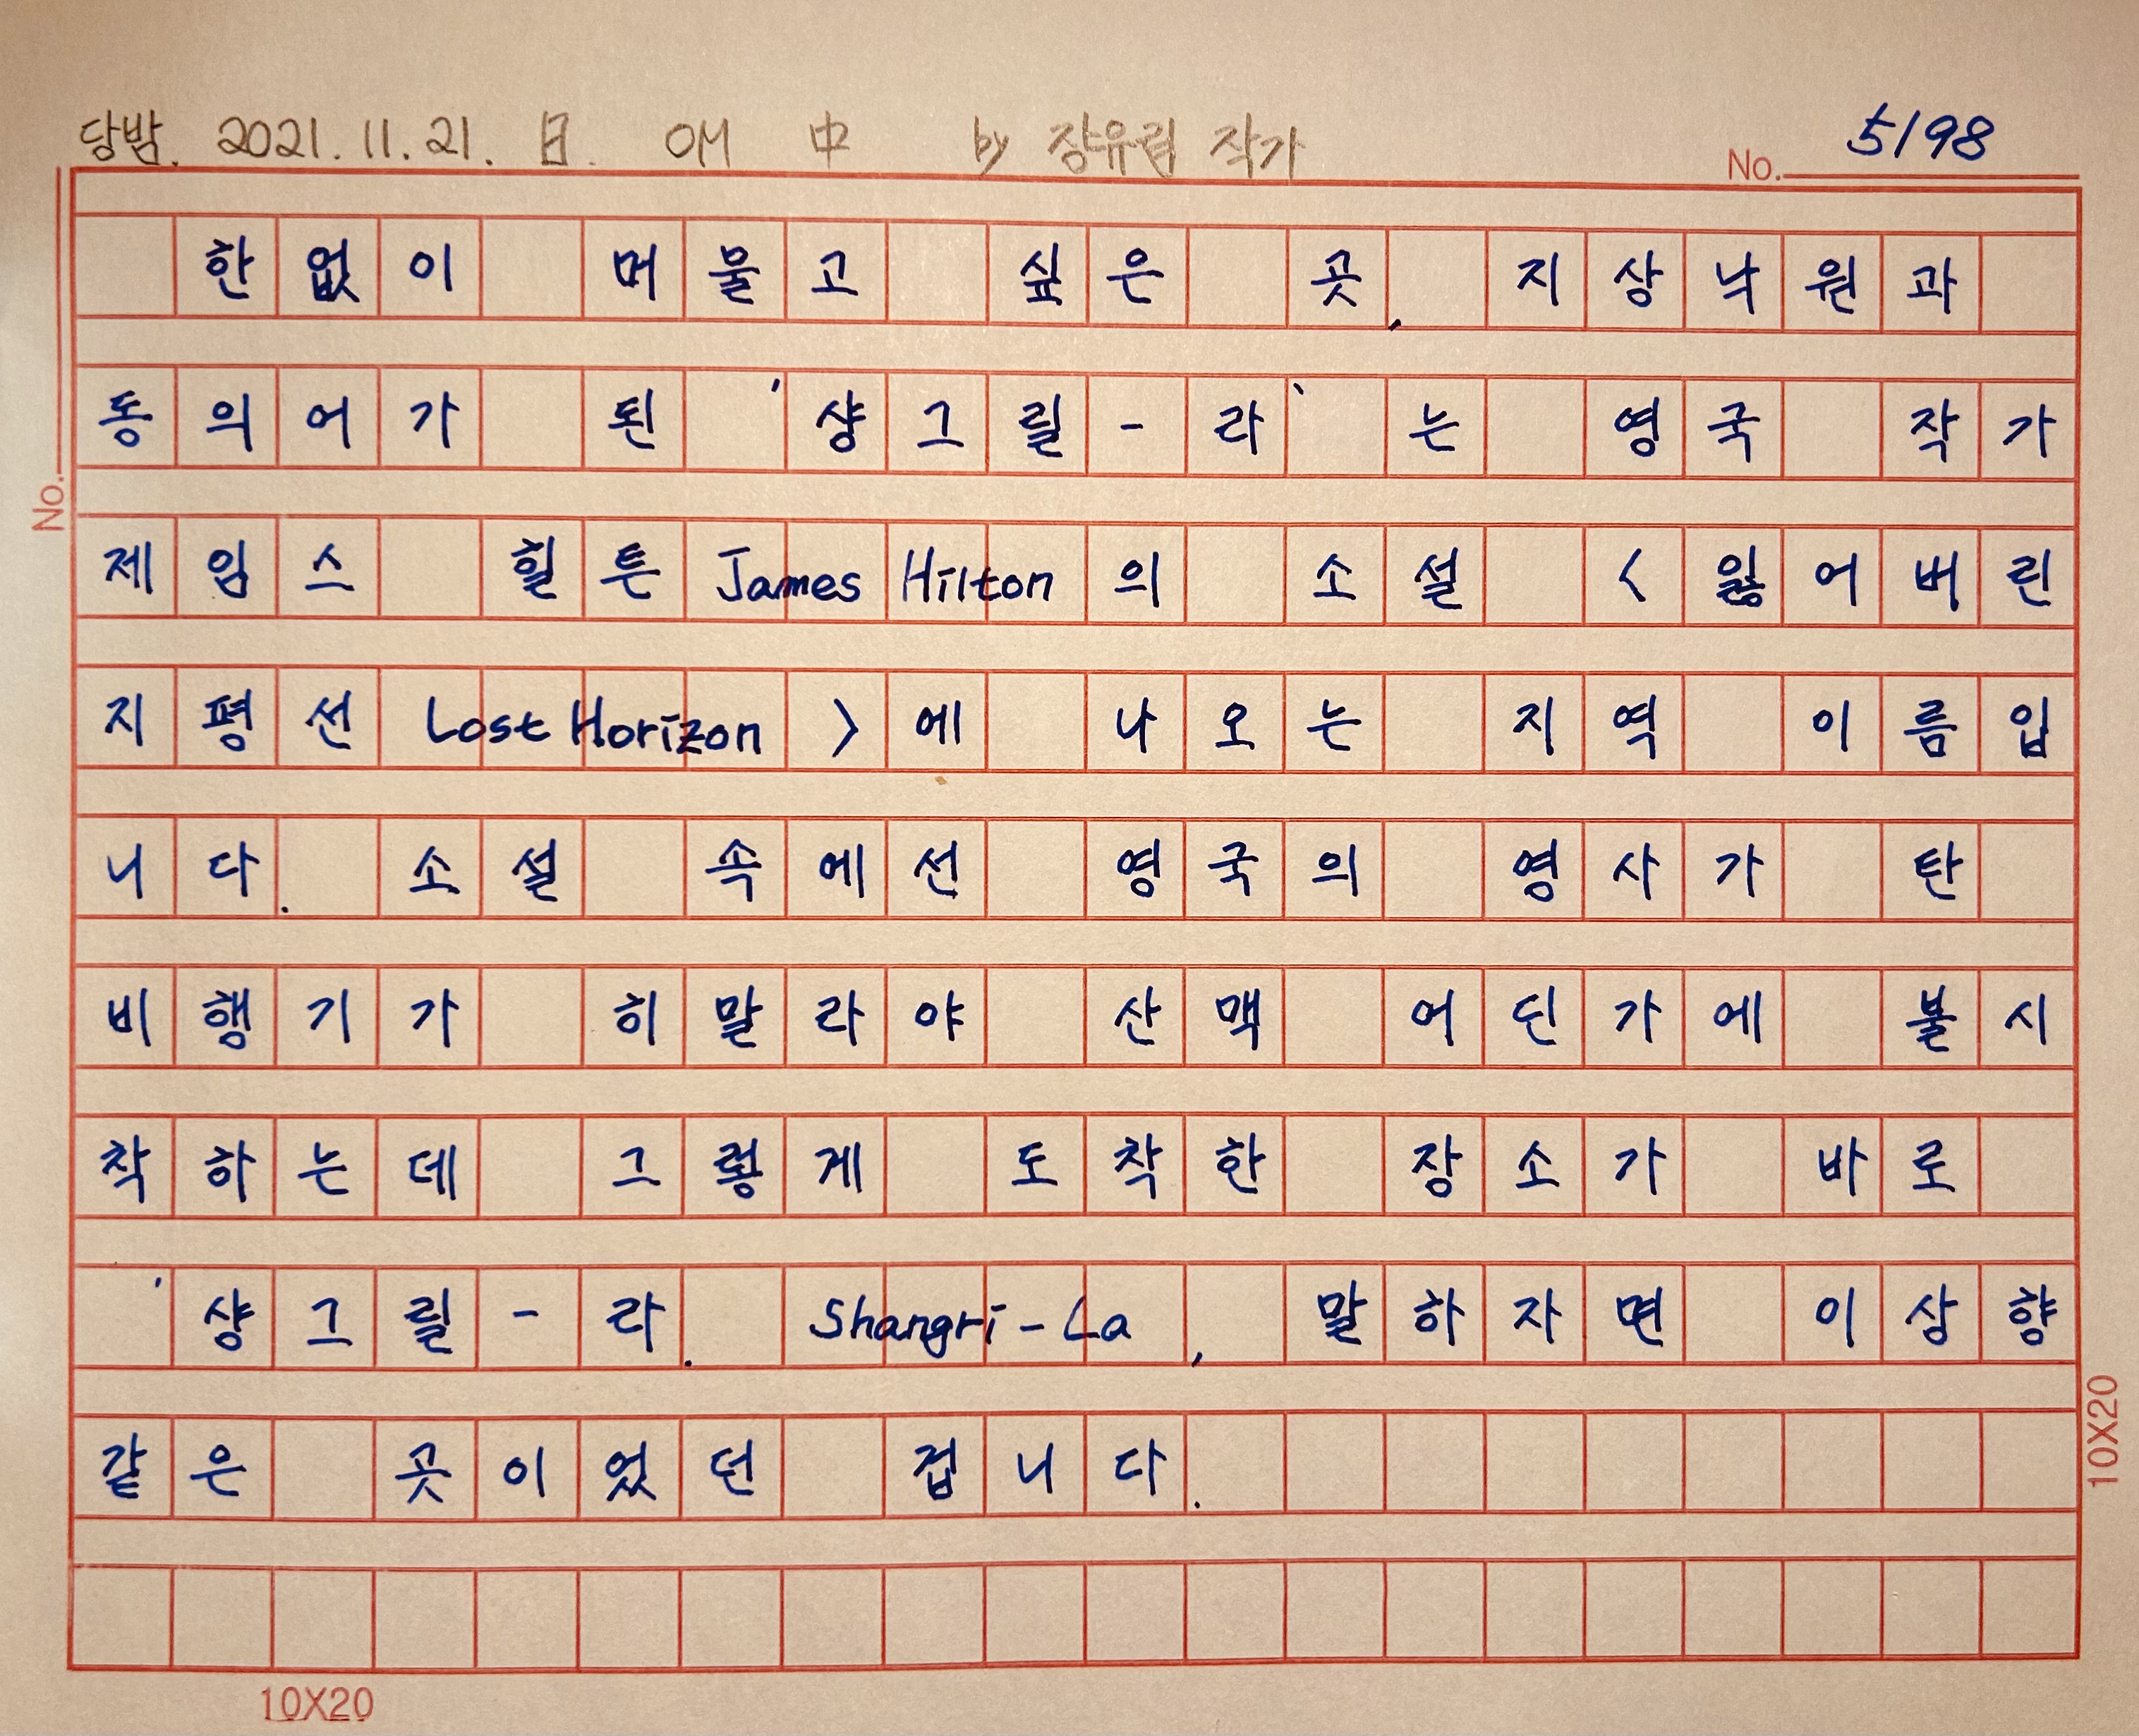 당밤. 2021. 11. 21. 日. OM 中 by 장유림 작가
No. 5198
한없이 머물고 싶은 곳, 지상낙원과
동의어가 된 '샹그릴-라'는 영국 작가
No.
제임스 힐튼 James Hilton의 소설 <잃어버린
지평선 Lost Horizon>에 나오는 지역 이름입
니다. 소설 속에선 영국의 영사가 탄
비행기가 히말라야 산맥 어딘가에 불시
착하는데 그렇게 도착한 장소가 바로
'샹그릴-라. Shangri-La, 말하자면 이상향
같은 곳이었던 겁니다.
10X20
10X20